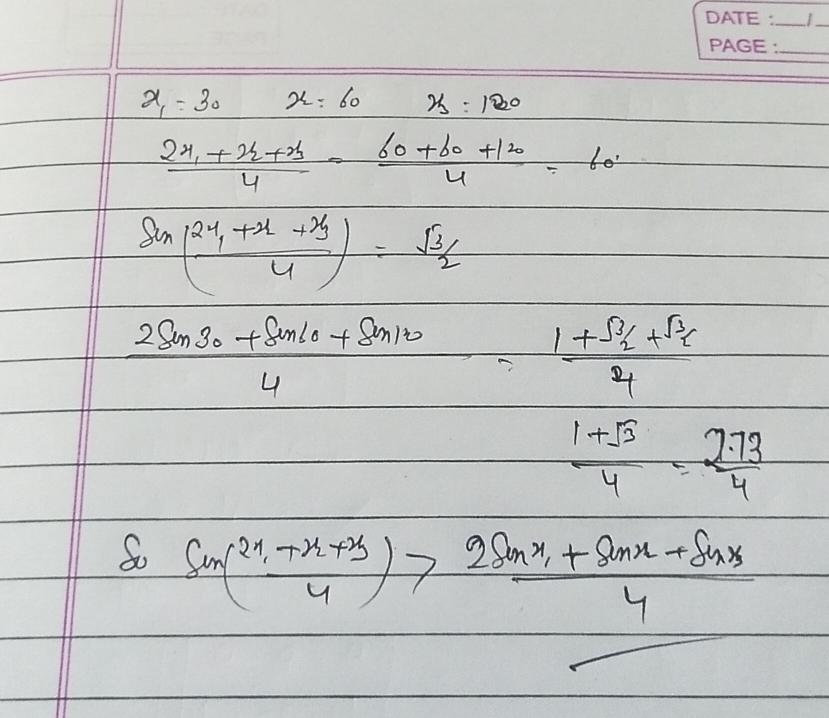 DATE : __/__
PAGE : ____
x₁ = 30 x₂ = 60 x₃ = 120
(2x₁ + x₂ + x₃)/4 = (60 + 60 + 120)/4 = 60°
Sin((2x₁ + x₂ + x₃)/4) = √3/2
(2 Sin 30 + Sin 60 + Sin 120)/4 = (1 + √3/2 + √3/2)/4
(1 + √3)/4 = 2.73/4
So Sin((2x₁ + x₂ + x₃)/4) > (2 Sin x₁ + Sin x₂ + Sin x₃)/4